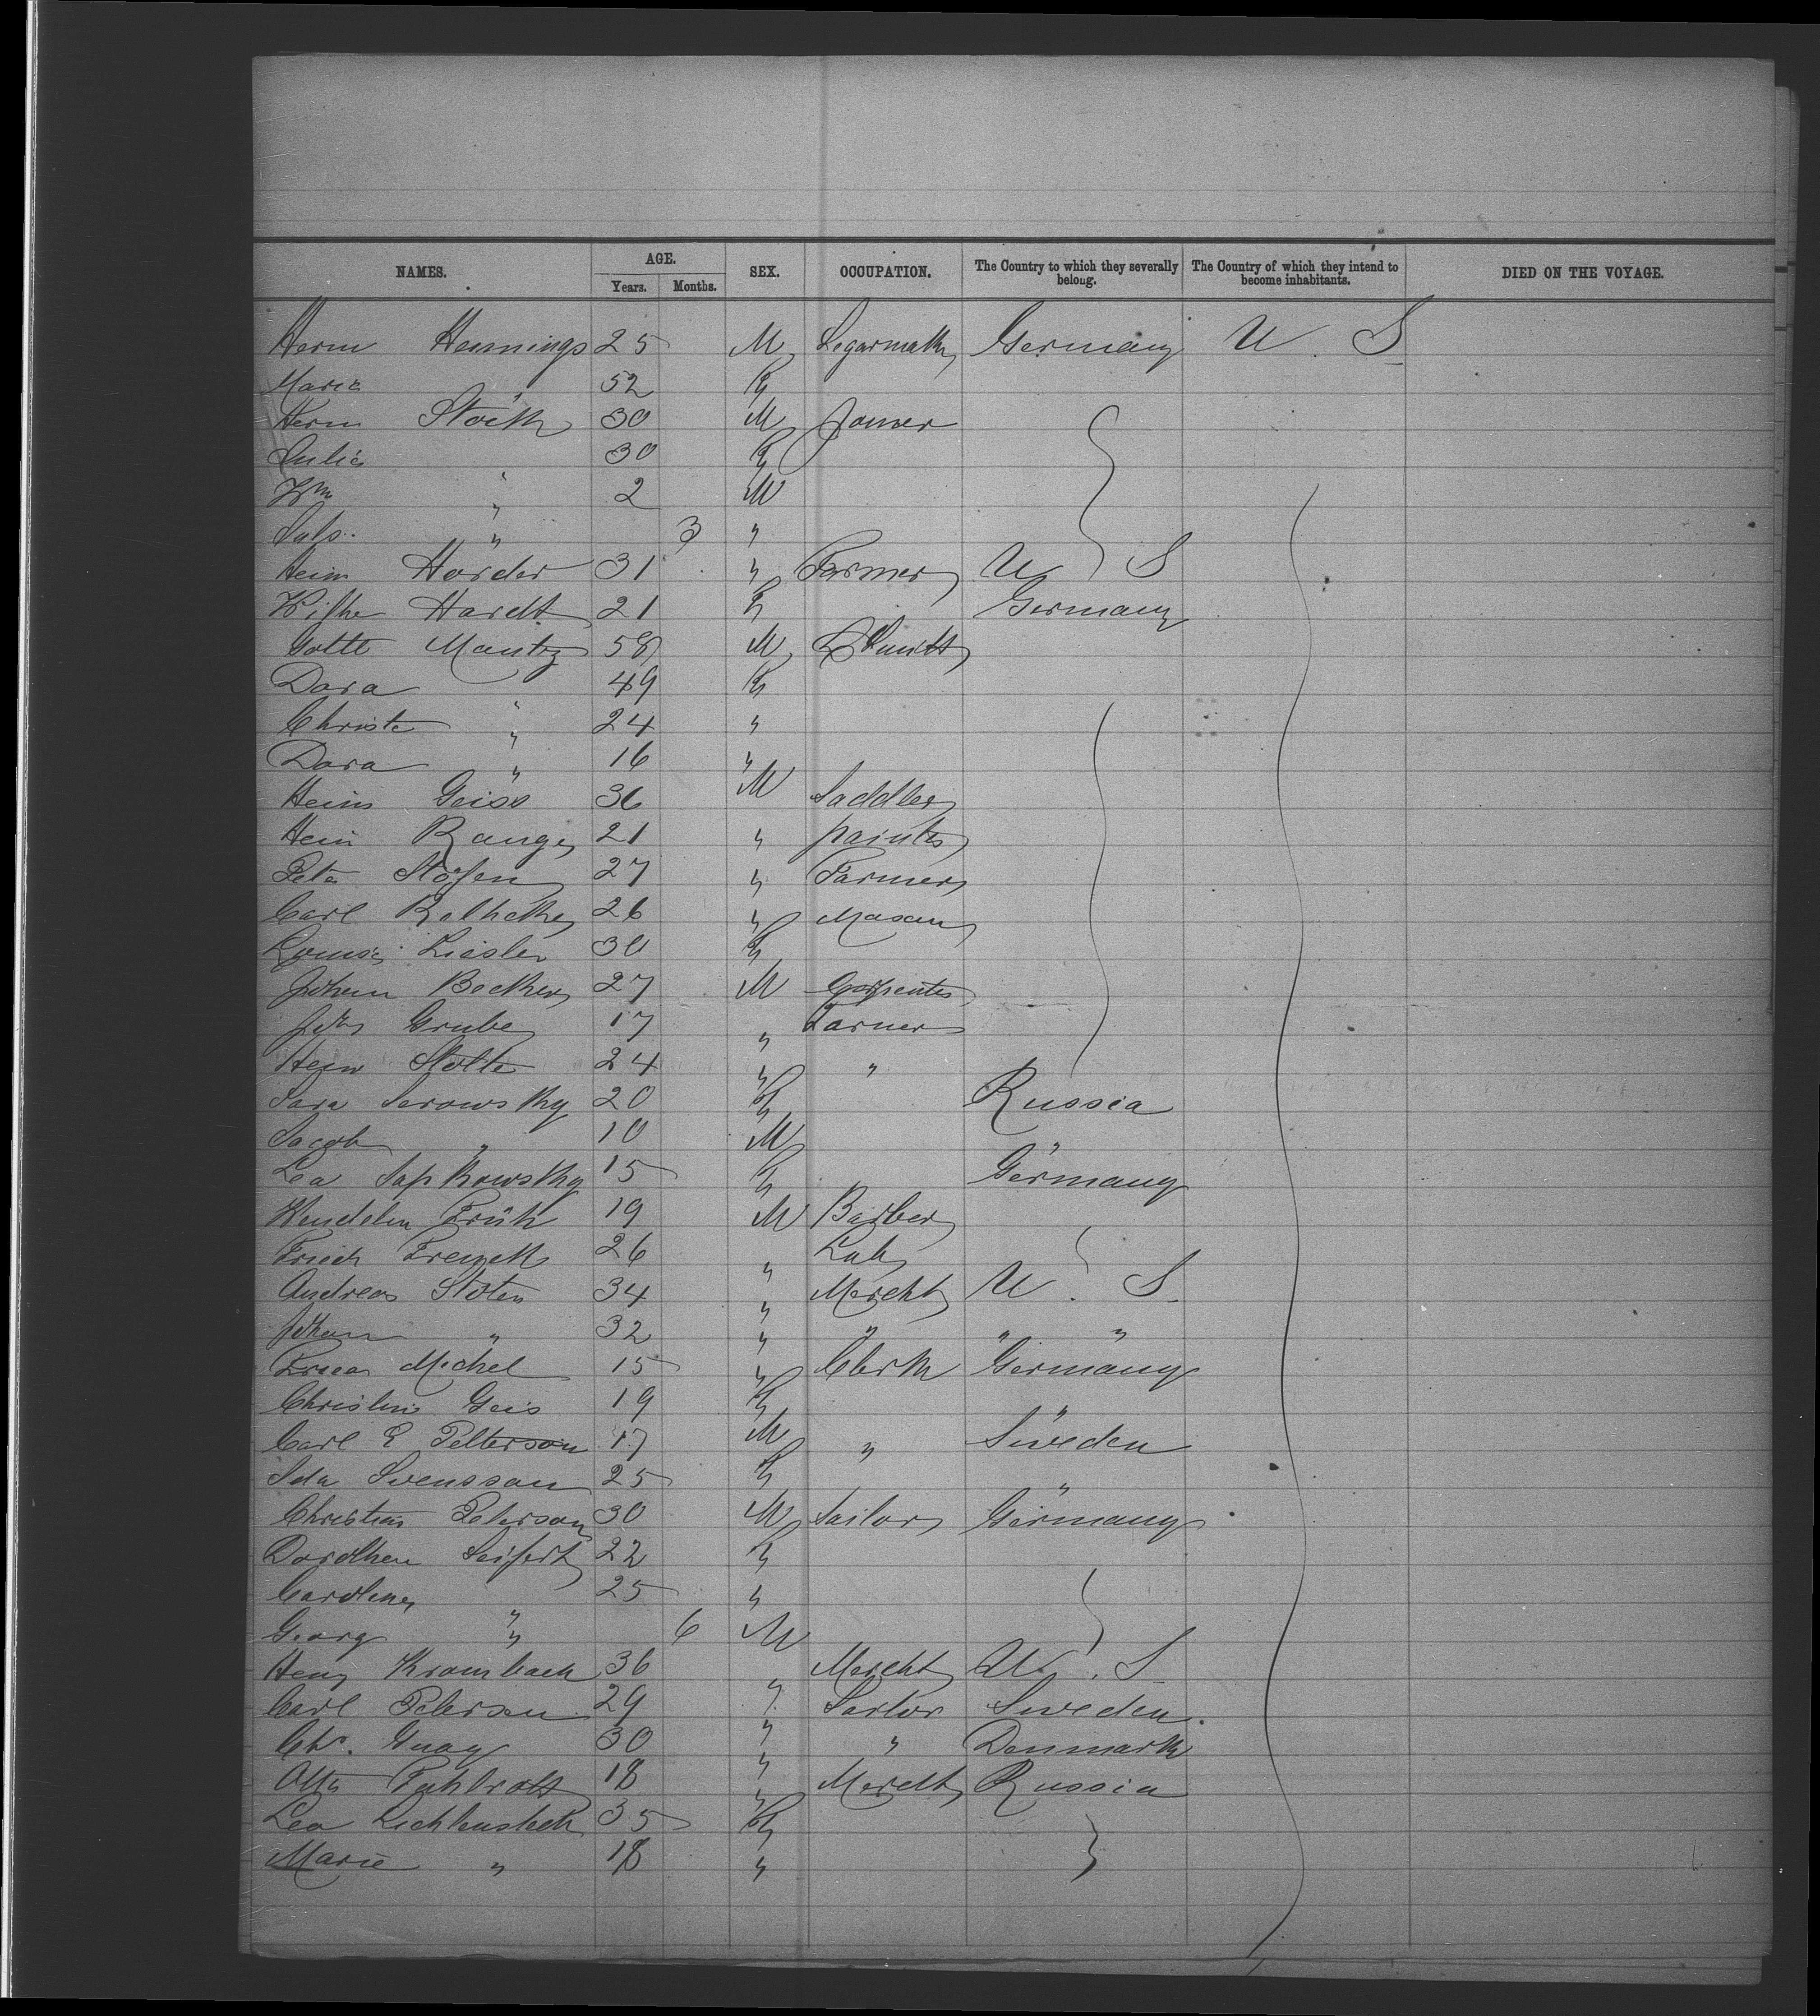 NAMES. AGE. SEX. OCCUPATION. The Country to which they severally belong. The Country of which they intend to become inhabitants. DIED ON THE VOYAGE.
Years. Months.
Herm Hennings 25 M Segarmak Germany U. S
Marie " 52 F
Herm 30 M Joiner
Julie " 30 F
Wm " 2 M
" 3 "
Hein Harder 31 " Farmer U S
Hardt 21 F Germany
Gottl Mantz 58 M
Dora " 49 F
Christe " 24 "
Dora " 16 "
Hein Geiss 36 M Saddler
Hein Range 21 " painter
Peter Stöfen 27 " Farmer
Carl 26 " Mason
Louise Liesler 30 F
Johann Becker 27 M Carpenter
Johs Grube 17 " Farmer
Hein Stolte 24 " "
Sara Serowsky 20 F Russia
Jacob " 10 M "
Lea Sapkowsky 15 F Germany
Wendelin Früh 19 M Barber
Friedr 26 " Lab
Andreas Stoten 34 " Mercht U. S.
Johan " 32 " " " "
Michel 15 " Clerk Germany
Christine Geis 19 F "
Carl E Petterson 17 M " Sweden
Ida Svensson 25 F "
Christian Peterson 30 M Sailor Germany
Dorothea Seifert 22 F
Caroline " 25 "
Georg " 6 M
Henry Krombach 36 " Mercht U. S
Carl Peterson 29 " Sailor Sweden.
Chr. 30 " " Denmark
Otto 18 " Mercht Russia
Lea 35 F
Marie " 18 "